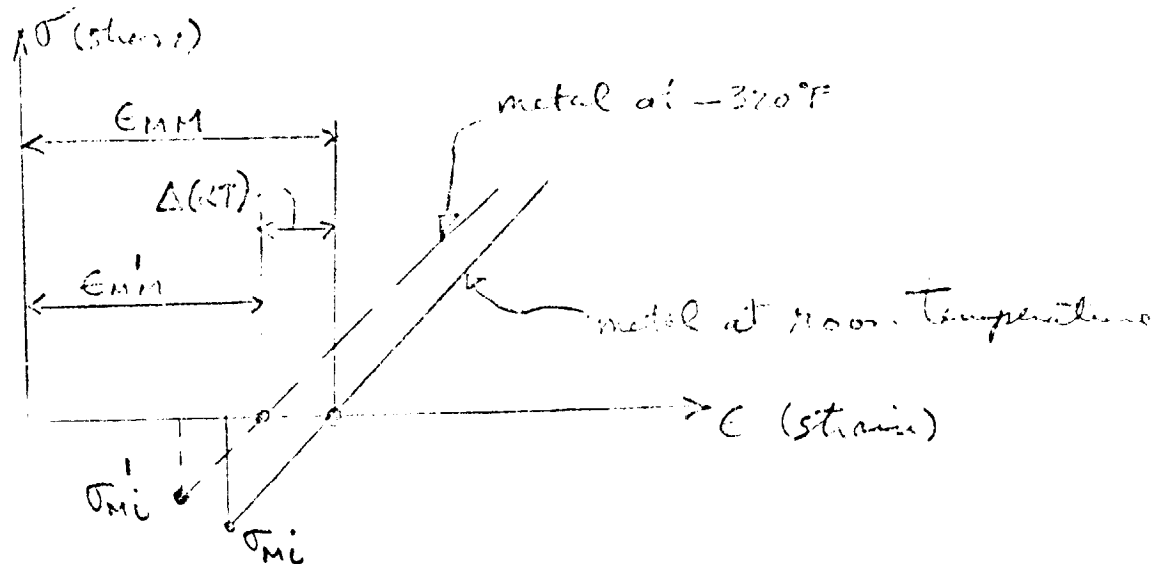 σ (stress)
metal at -320°F
ϵMM
Δ(αT)
ϵM'M
metal at room Temperature
ϵ (strain)
σ'Mi
σMi